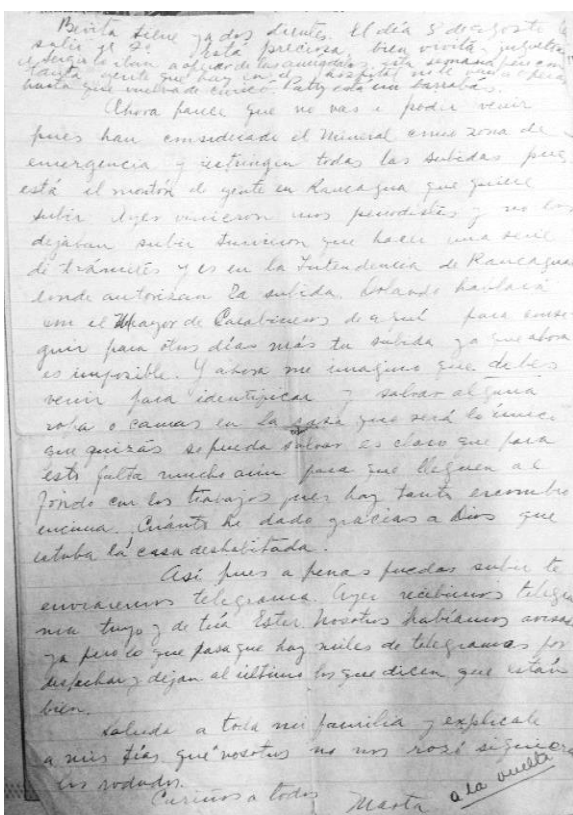 Bevita tiene ya dos dientes. El día 5 de agosto le
salió el 2º. Está preciosa, bien vivita y juguetona
a Sergio lo iban a operar de las amígdalas esta semana pero con
tanta gente que hay en el hospital no lo van a operar
hasta que vuelva de Curicó. Patty está un barrabás.
Ahora parece que no vas a poder venir
pues han considerado el Mineral como zona de
emergencia y restringen todas las subidas pues
está el montón de gente en Rancagua que quiere
subir. Ayer vinieron unos periodistas y no los
dejaban subir tuvieron que hacer una serie
de trámites y es en la Intendencia de Rancagua
donde autorizan la subida. Rolando hablará
con el Mayor de Carabineros de aquí para conse-
guir para otros días más tu subida ya que ahora
es imposible. Y ahora me imagino que debes
venir para identificar y salvar alguna
ropa o camas en la casa que será lo único
que quizás se pueda salvar es claro que para
esto falta mucho aún para que lleguen al
fondo con los trabajos pues hay tanto escombro
encima. Cuánto he dado gracias a Dios que
estaba la casa deshabitada.
Así pues a penas puedas subir te
enviaremos telegrama. Ayer recibimos telegra
ma tuyo y de tía Ester. Nosotros habíamos avisado
ya pero lo que pasa que hay miles de telegramas por
despachar y dejan al último los que dicen que están
bien.
Saluda a toda mi familia y explícale
a mis tías que nosotros no nos rozó siquiera
los rodados.
Cariños a todos Marta a la vuelta